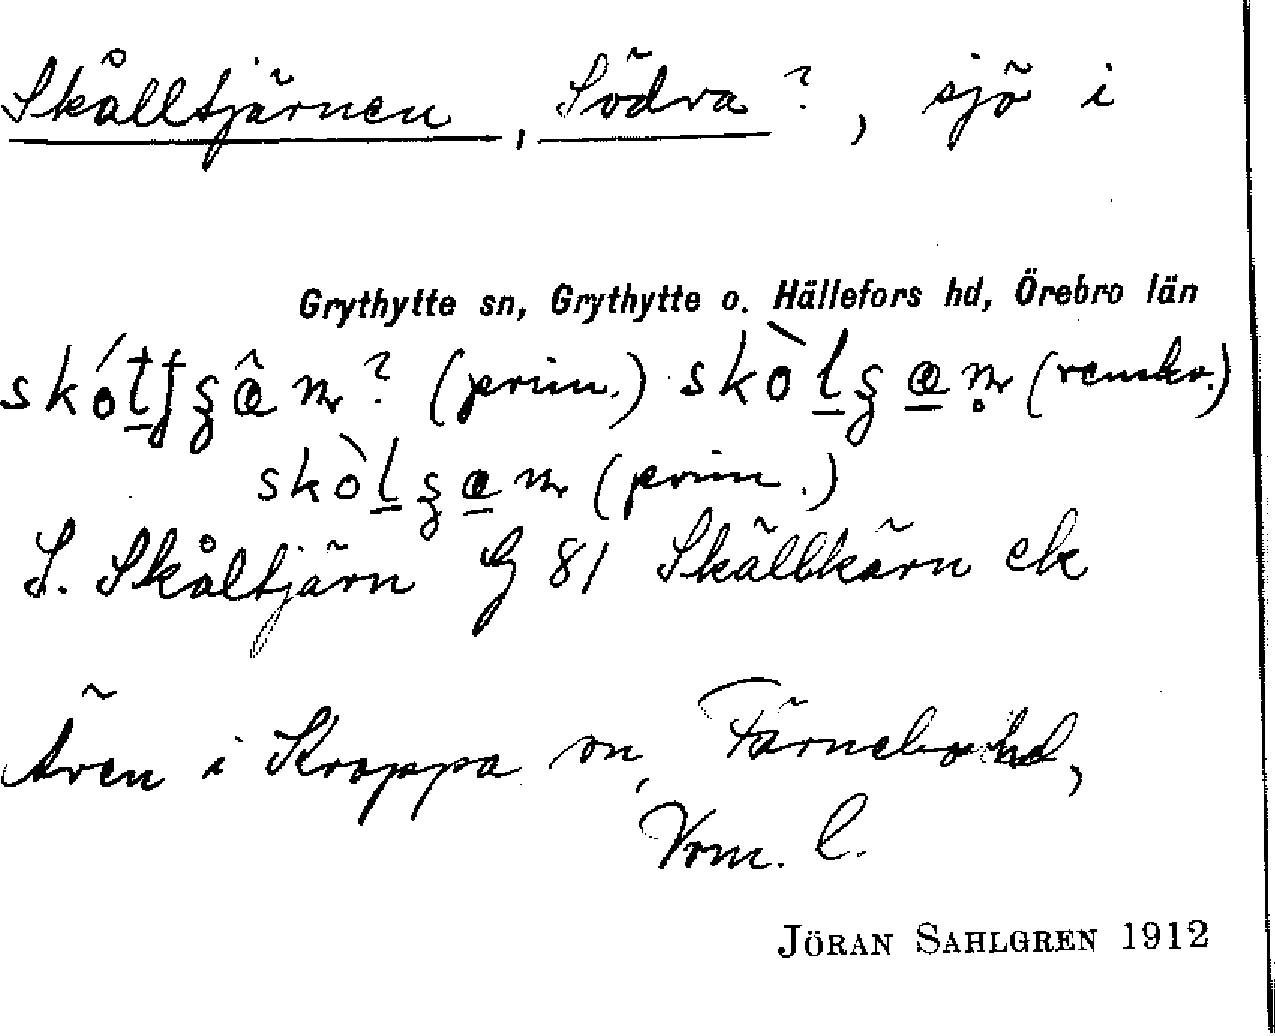 Skålltjärnen, Södra?, sjö i
Grythytte sn, Grythytte o. Hällefors hd, Örebro län
(prim.)
(prim.)
S. Skåltjärn G 81 Skällkärn ek
Även i Kroppa sn, Färnebo hd,
Vrm. l.
JÖRAN SAHLGREN 1912